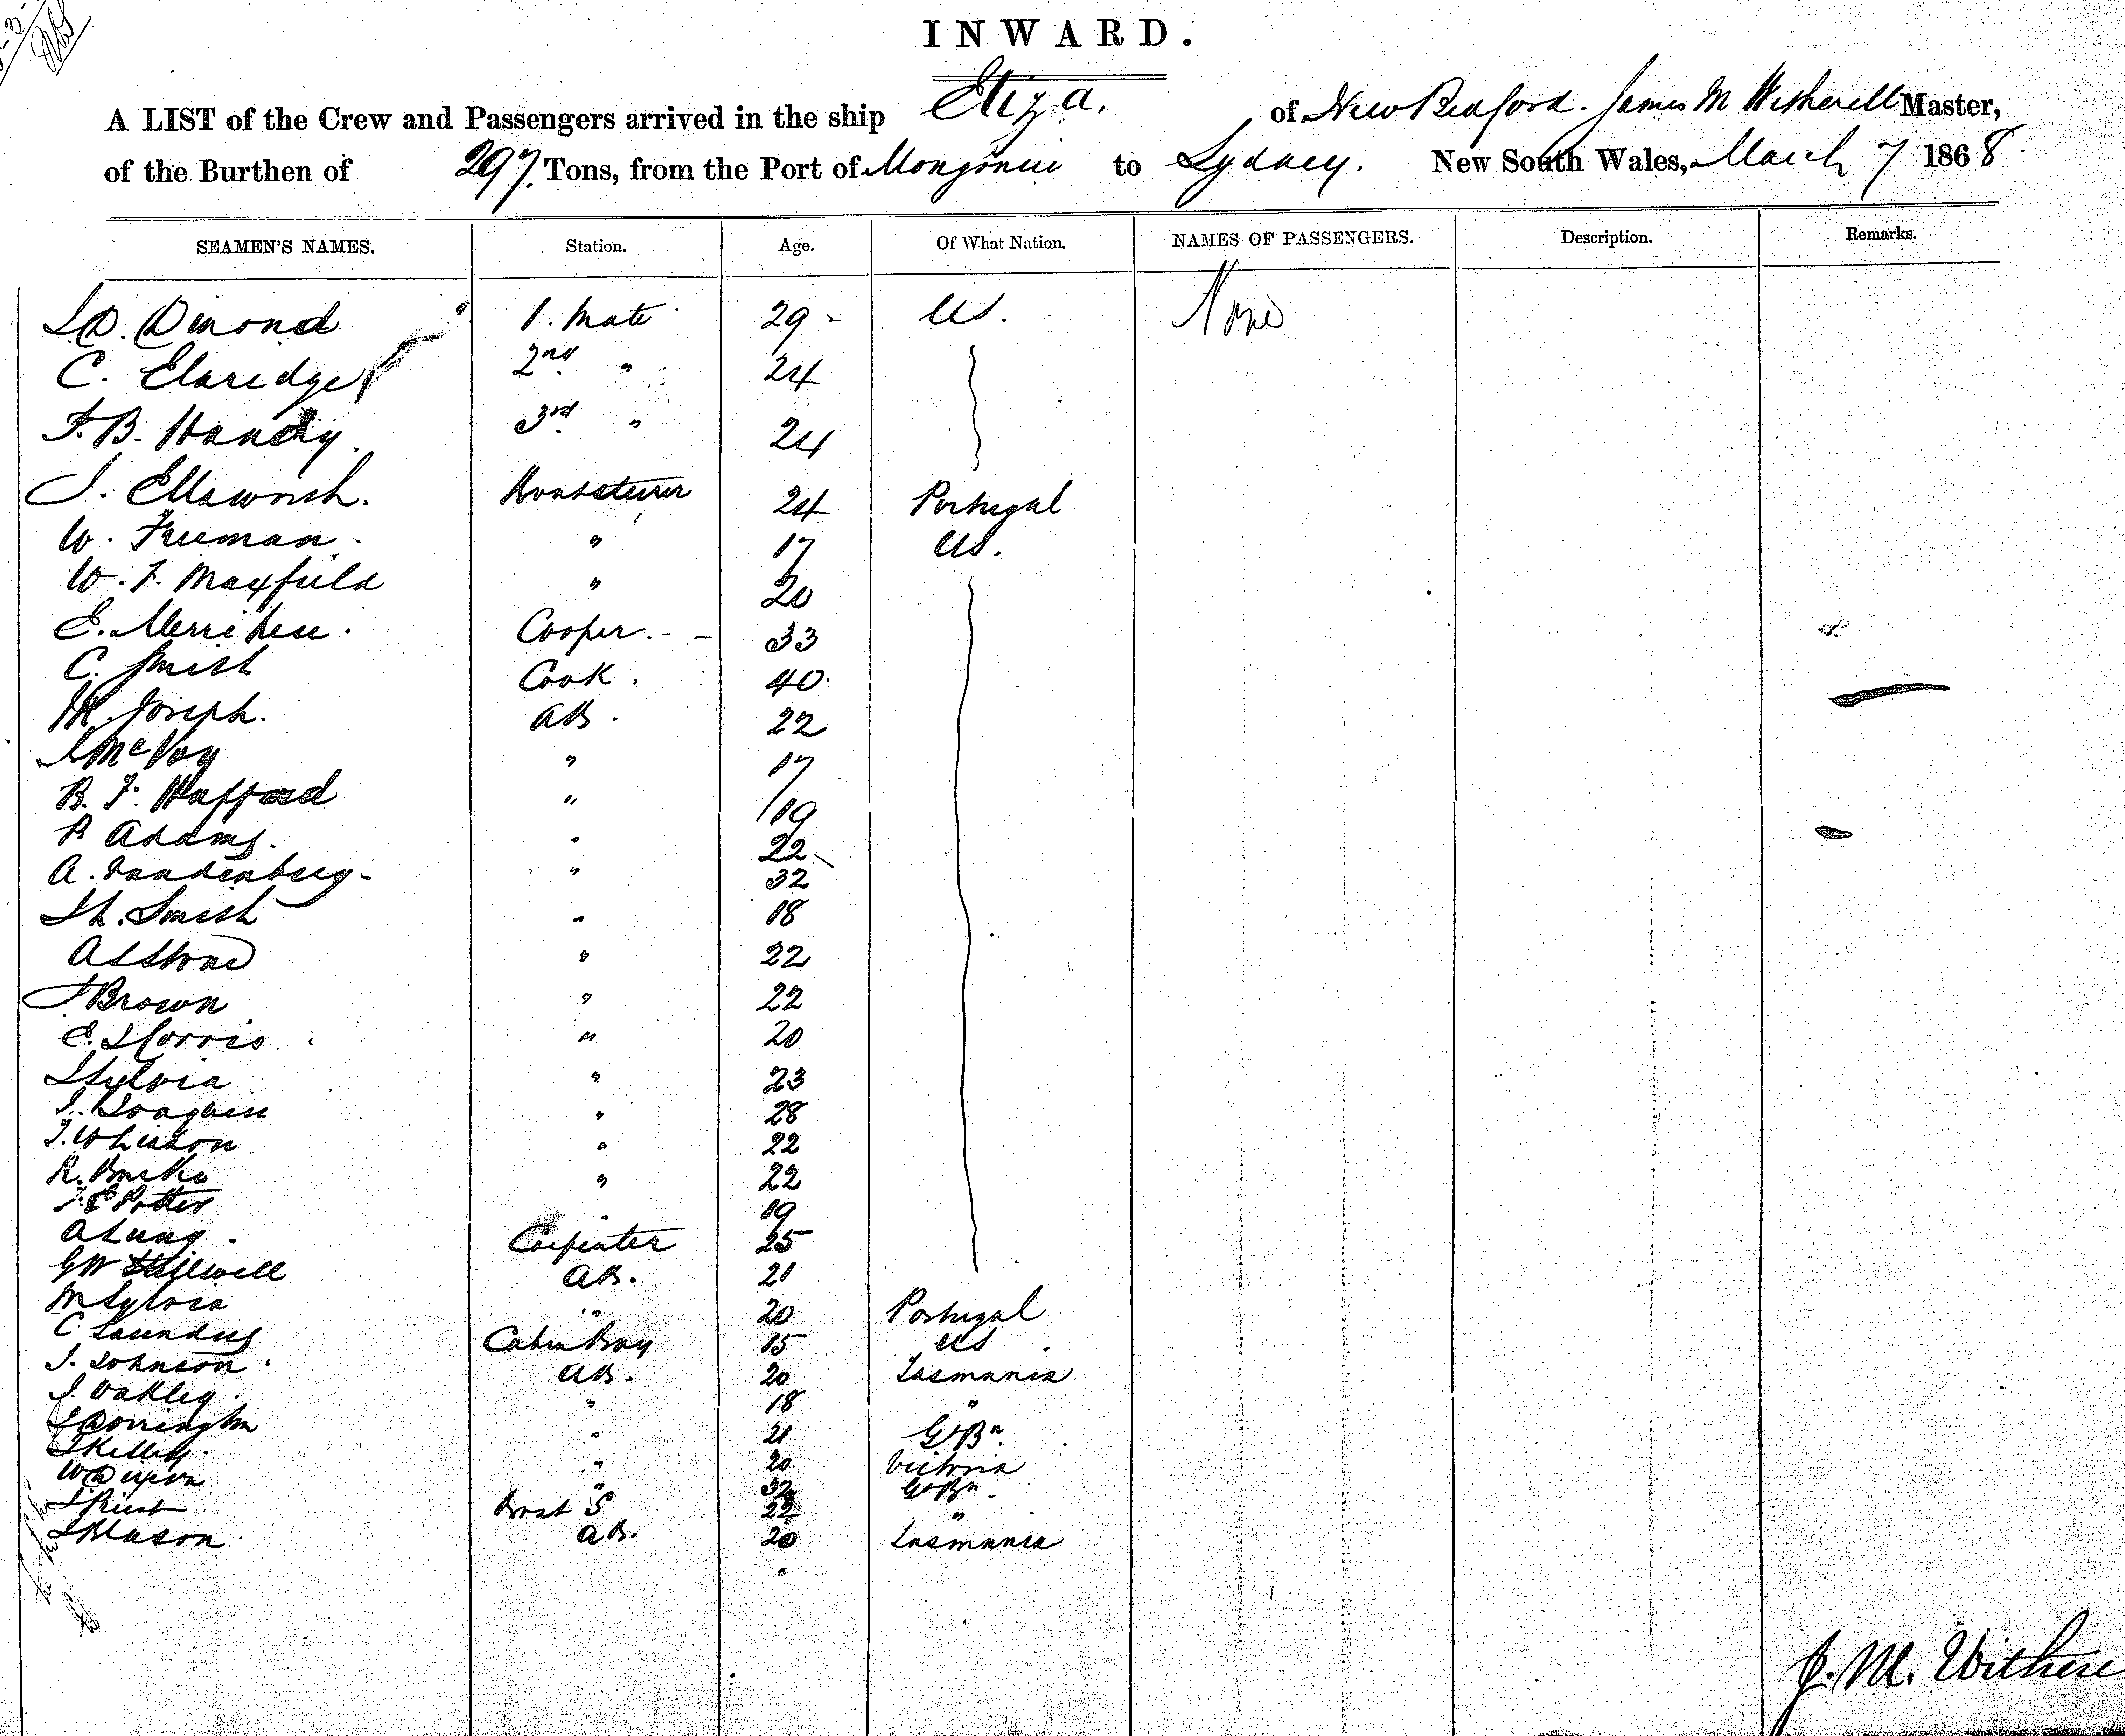 INWARD.
A LIST of the Crew and Passengers arrived in the ship Eliza. of New Bedford. James M Witherell Master,
of the Burthen of 297. Tons, from the Port of Mongonui to Sydney. New South Wales, March 7 1868
SEAMEN'S NAMES. Station. Age. Of What Nation. NAMES OF PASSENGERS. Description. Remarks.
D. Dimond 1. Mate 29 US. None
C. Eldredge 2nd " 24
F. B. Handy 3rd " 24
J. Ellsworth. Boatsteerer 24 Portugal
W. Freeman. " 17 US.
W. F. Maxfield " 20
E. Merrihew. Cooper. 33
C. Smith Cook. 40
Joseph. AB. 22
McVoy " 17
B. F. Haffard " 19
P Adams. " 22
A. Vandenburg " 32
Smith " 18
A S Stone " 22
J Brown " 22
E. Morris " 20
J Sylvia " 23
J. Joaquin " 28
J. Wheaton " 22
R. Burke " 22
J E Potter " 19
A Lung. Carpenter 25
G W Stilwell AB. 21
M Sylvia " 20 Portugal
C Saunders Cabin Boy 15 US
J. Johnson. AB. 20 Tasmania
J. Oakley. " 18 "
J Dorrington " 21 Gt Bn.
J Kelley. " 20 Victoria
W " 32 Gt Bn.
J Boat S 22 "
J Mason AB. 20 Tasmania
J. M. Withere